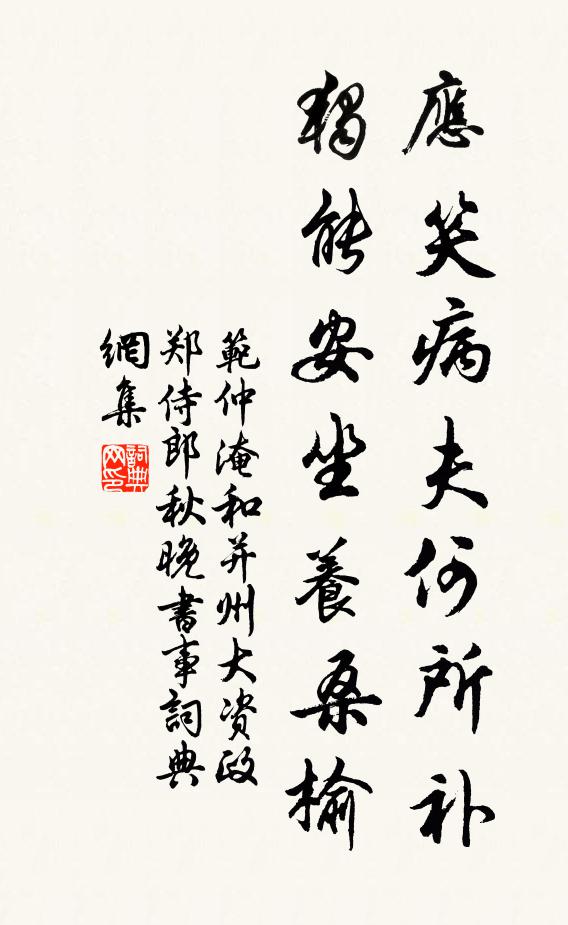 應笑病夫何所补
獨能安坐養桑榆
範仲淹和并州大资政
郑侍郎秋晚書事詞典
網集
詞典网印